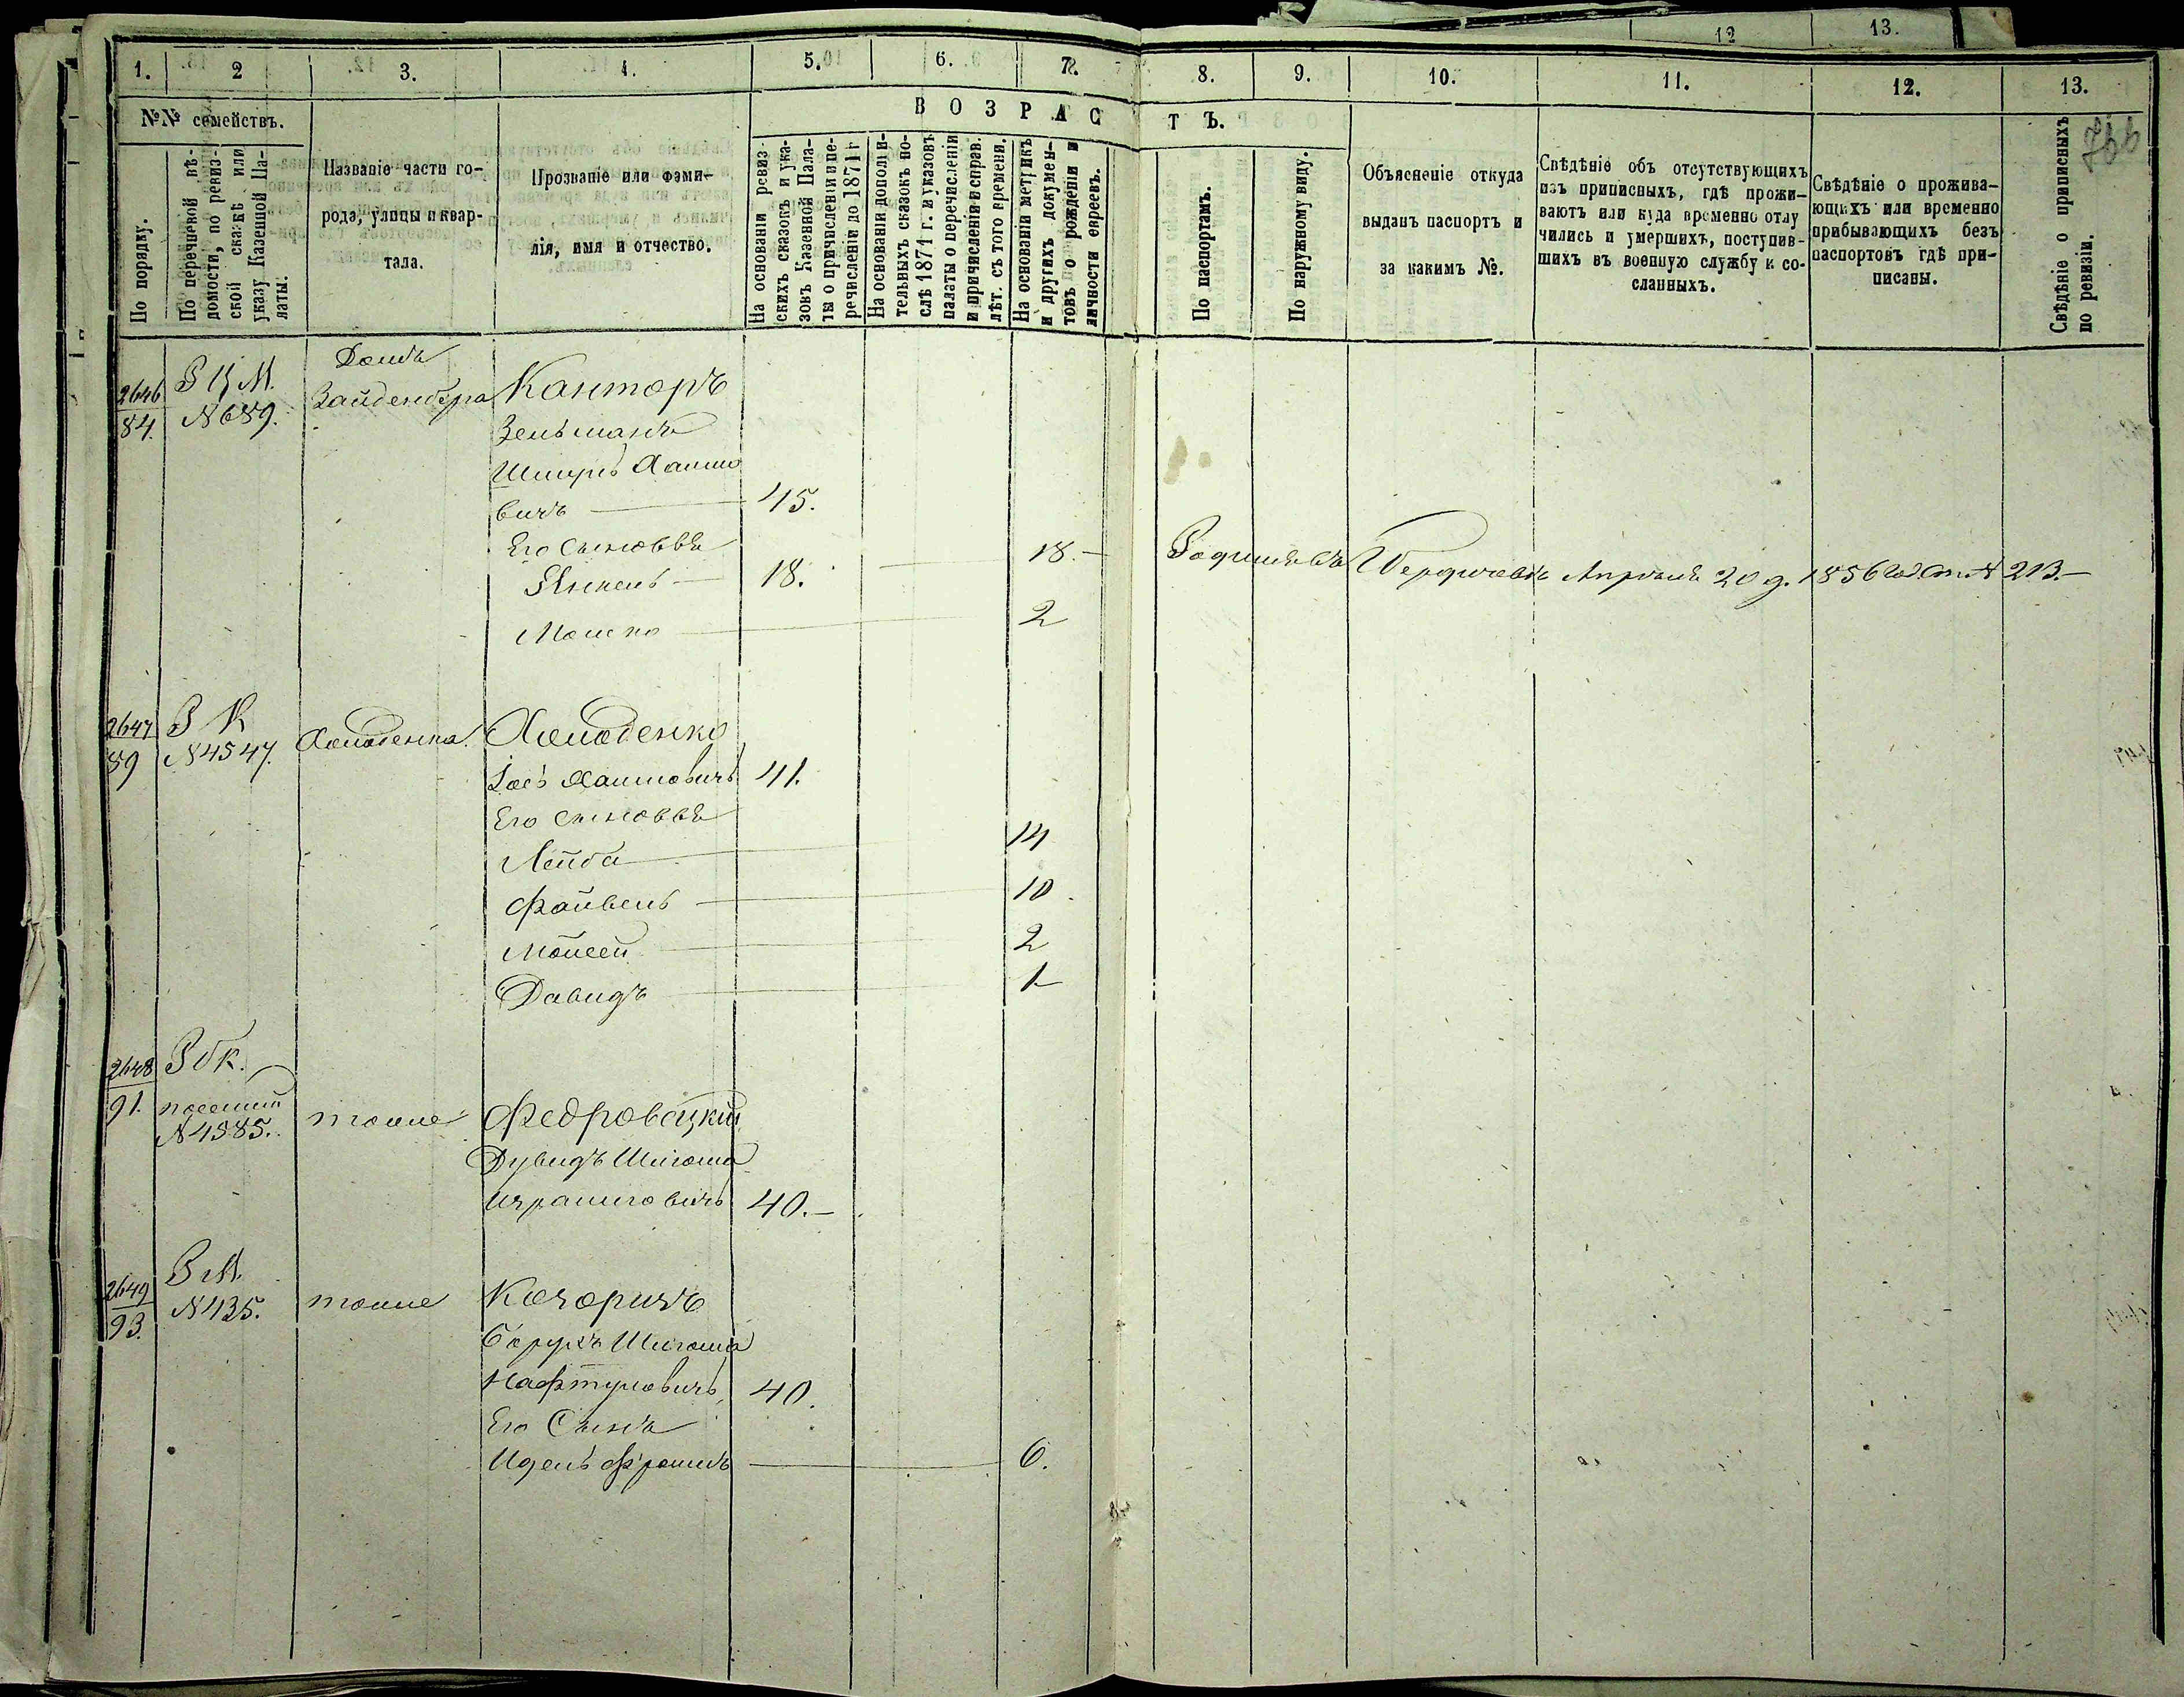 12 13.
1. 2 3. 4. 5. 6. 7. 8. 9. 10. 11. 12. 13.
№№ семействъ.
В О З Р А С Т Ъ.
По порядку.
По перечневой вѣ-
домости, по ревиз-
ской сказкѣ или
указу Казенной Па-
латы.
Названіе части го-
рода, улицы и квар-
тала.
Прозваніе или фами-
лія, имя и отчество.
На основаніи ревиз-
скихъ сказокъ и ука-
зовъ Казенной Пала-
ты о причисленіи и пе-
речисленіи до 1871 г
На основаніи дополни-
тельныхъ сказокъ по-
слѣ 1871 г. и указовъ
палаты о перечисленіи
и причисленіи и справ.
лѣт. съ того времени.
На основаніи метрикъ
и другихъ докумен-
товъ о рожденіи и
личности евреевъ.
По паспортамъ.
По наружному виду.
Объясненіе откуда
выданъ паспортъ и
за какимъ №.
Свѣдѣніе объ отсутствующихъ
изъ приписныхъ, гдѣ прожи-
ваютъ или куда временно отлу
чились и умершихъ, поступив-
шихъ въ военную службу и со-
сланныхъ.
Свѣдѣніе о прожива-
ющихъ или временно
прибывающихъ безъ
паспортовъ гдѣ при-
писаны.
Свѣдѣніе о приписныхъ
по ревизіи.
Домъ
2646 Зайденберга Канторъ
84. №689.
Зельманъ
Шмуль Хаимо
вичъ — 45.
Его сыновья
Янкель — 18. — 18. — Родился въ Бердичевѣ Апрѣля 20 д. 1856 №213.—
Мошко — 2
2647 Р К Холоденка. Холоденко
89 №4547.
Іосъ Хаимовичъ 41.
Его сыновья
Лейба — 14
Файвель — 10.
Мойсей — 2
Давидъ — 1
2648
91. №4585. тоже Федровецкій
Дувидъ Шлёма
Израилевичъ 40.—
2649 Р М.
93. №435. тоже
Борухъ Шлёма
Нафтуловичъ 40.
Его Сынъ
Идель Фроимъ — 6.